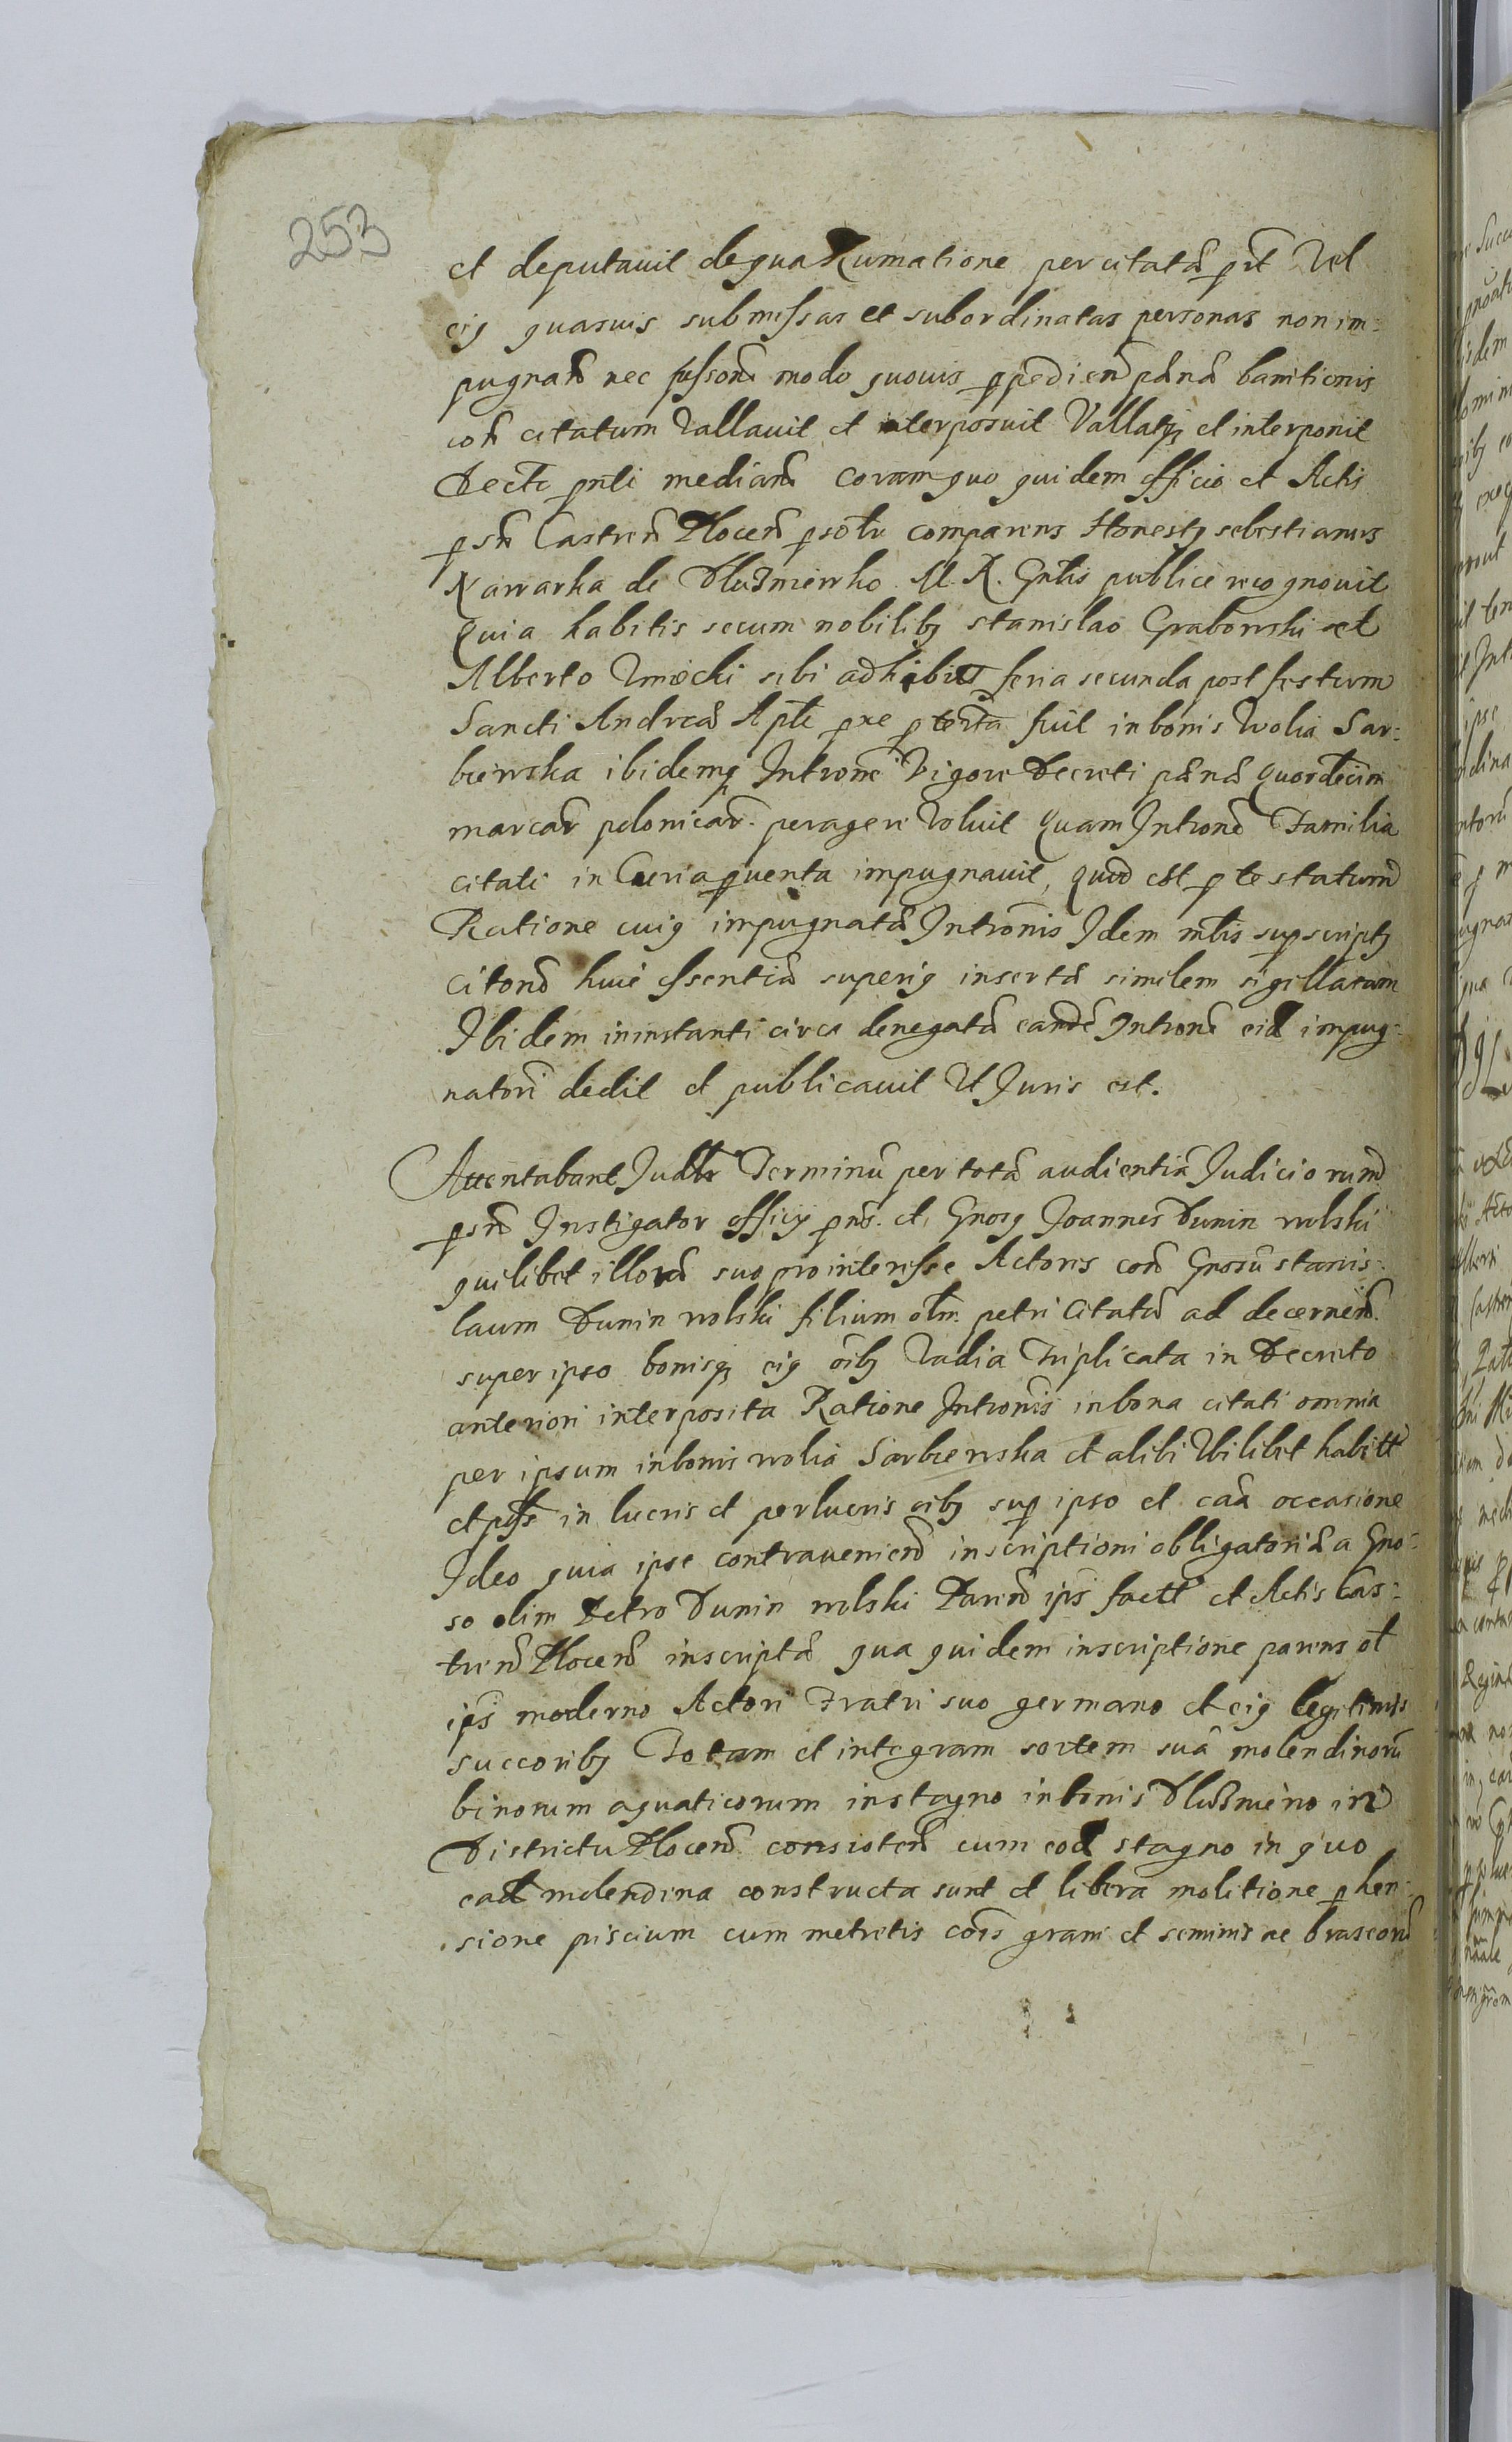 253
et deputavit de qua Rumatione per citatã Vel
eiꝰ quasuis submissas et subordinatas personas non im-
pugnañ nec modo quouis bannitionis
coñ citatum Vallauit et interposuit Vallatqꝫ et interponit
Decto pñti median̄ coram quo quidem officio et Actis
pñ Castreñ Plocen̄ psolr comparens Honestꝰ sebestianus
Kawarka de Dłużniewko M. R. Gñlis publice recognouit
Quia habitis secum nobilibꝫ stanislao Grabowski et
Alberto Umocki sibi adhibitis feria secunda post festum
Sancti Andreæ Apłi pxe pterita fuit in bonis Wolia Sar-
biewska ibidemqꝫ Intronẽ Vigore Decreti pænæ quordecim
marcar̃ polonicar̃ peragere Voluit Quam Intronẽ Familia
citati in Curia inuenta impugnauit, quod est ptestatum
Ratione cuiꝰ impugnatæ Intronis Idem mtis supscriptꝰ
Citonẽ huic essentiæ superiꝰ insertã similem sigillatam
Ibidem in instanti circa denegatã eandẽ Intronẽ eid impug-
natori dedit et publicauit Ut Juris est.
Attentabant Judlr Terminũ per totã audientiã Judiciorum
pñ Instigator officij pñs. et Gnosꝰ Joannes Dunin wolski
quilibet illorũ suo pro interesse Actores coñ Gnosũ stanis-
laum Dunin wolski filium olm petri Citatũ ad decerneñ
super ipso bonisqꝫ eiꝰ oibꝫ Vadia Triplicata in Decreto
anteriori interposita Ratione Intronis in bona citati omnia
per ipsum in bonis wolia Sarbiewska et alibi Ubilibet habitt
et in lucris et perlucris oibꝫ sup ipso et eaã occasione
Ideo quia ipse contraueniend inscriptioni obligatoriæ a Gno-
so olim Petro Dunin wolski Parenẽ ips factæ et Actis Cas-
treñ Plocen̄ inscriptæ qua quidem inscriptione parens ol
ips moderno Actori Fratri suo germano et eiꝰ legitimis
succoribꝫ Totam et integram sortem suã molendinorũ
binorum aquaticorum in stagno in bonis Dłużniewo in
Districtu Plocen̄ consisteñ cum eod stagno in quo
ead molendina constructa sunt et libera molitione phen-
sione piscium cum metretis cois grani et seminis ac braseorũ